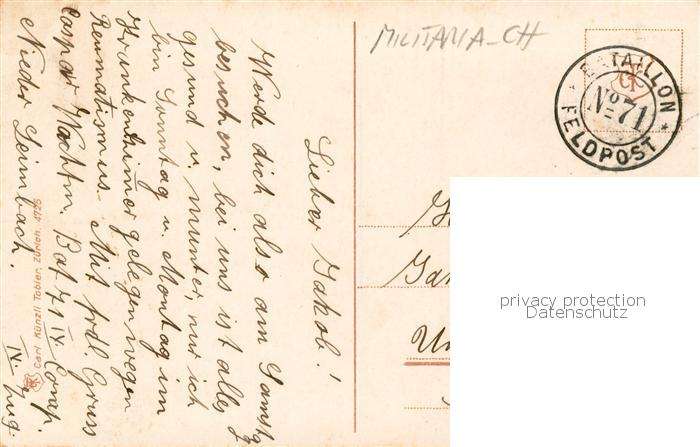 MILITARIA-CH
BATAILLON
No 71
FELDPOST
Lieber Jakob!
Werde dich also am Samstg
besuchen, bei uns ist alles
gesund u. munter, nur ich
bin Sonntag u. Montag im
Krankenzimmer gelegen wegen
Reumatismus. Mit frdl. Gruss
Caspar Wachtm. Bat 71 IV. Comp.
IV. Zug.
Nieder Leimbach.
Carl Künzli Tobler, Zürich. 4926
privacy protection
Datenschutz